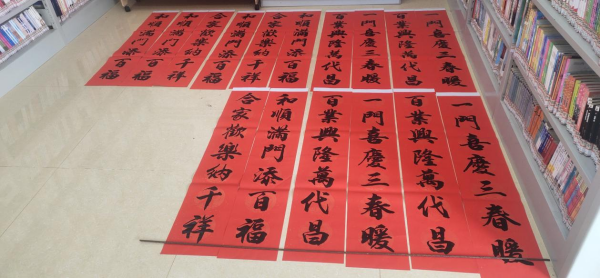 一門喜慶三春暖
百業興隆萬代昌
一門喜慶三春暖
百業興隆萬代昌
和順滿門添百福
合家歡樂納千祥
和順滿門添百福
合家歡樂納千祥
和順滿門添百福
和順滿門添百福
一門喜慶三春暖
百業興隆萬代昌
一門喜慶三春暖
百業興隆萬代昌
和順滿門添百福
合家歡樂納千祥